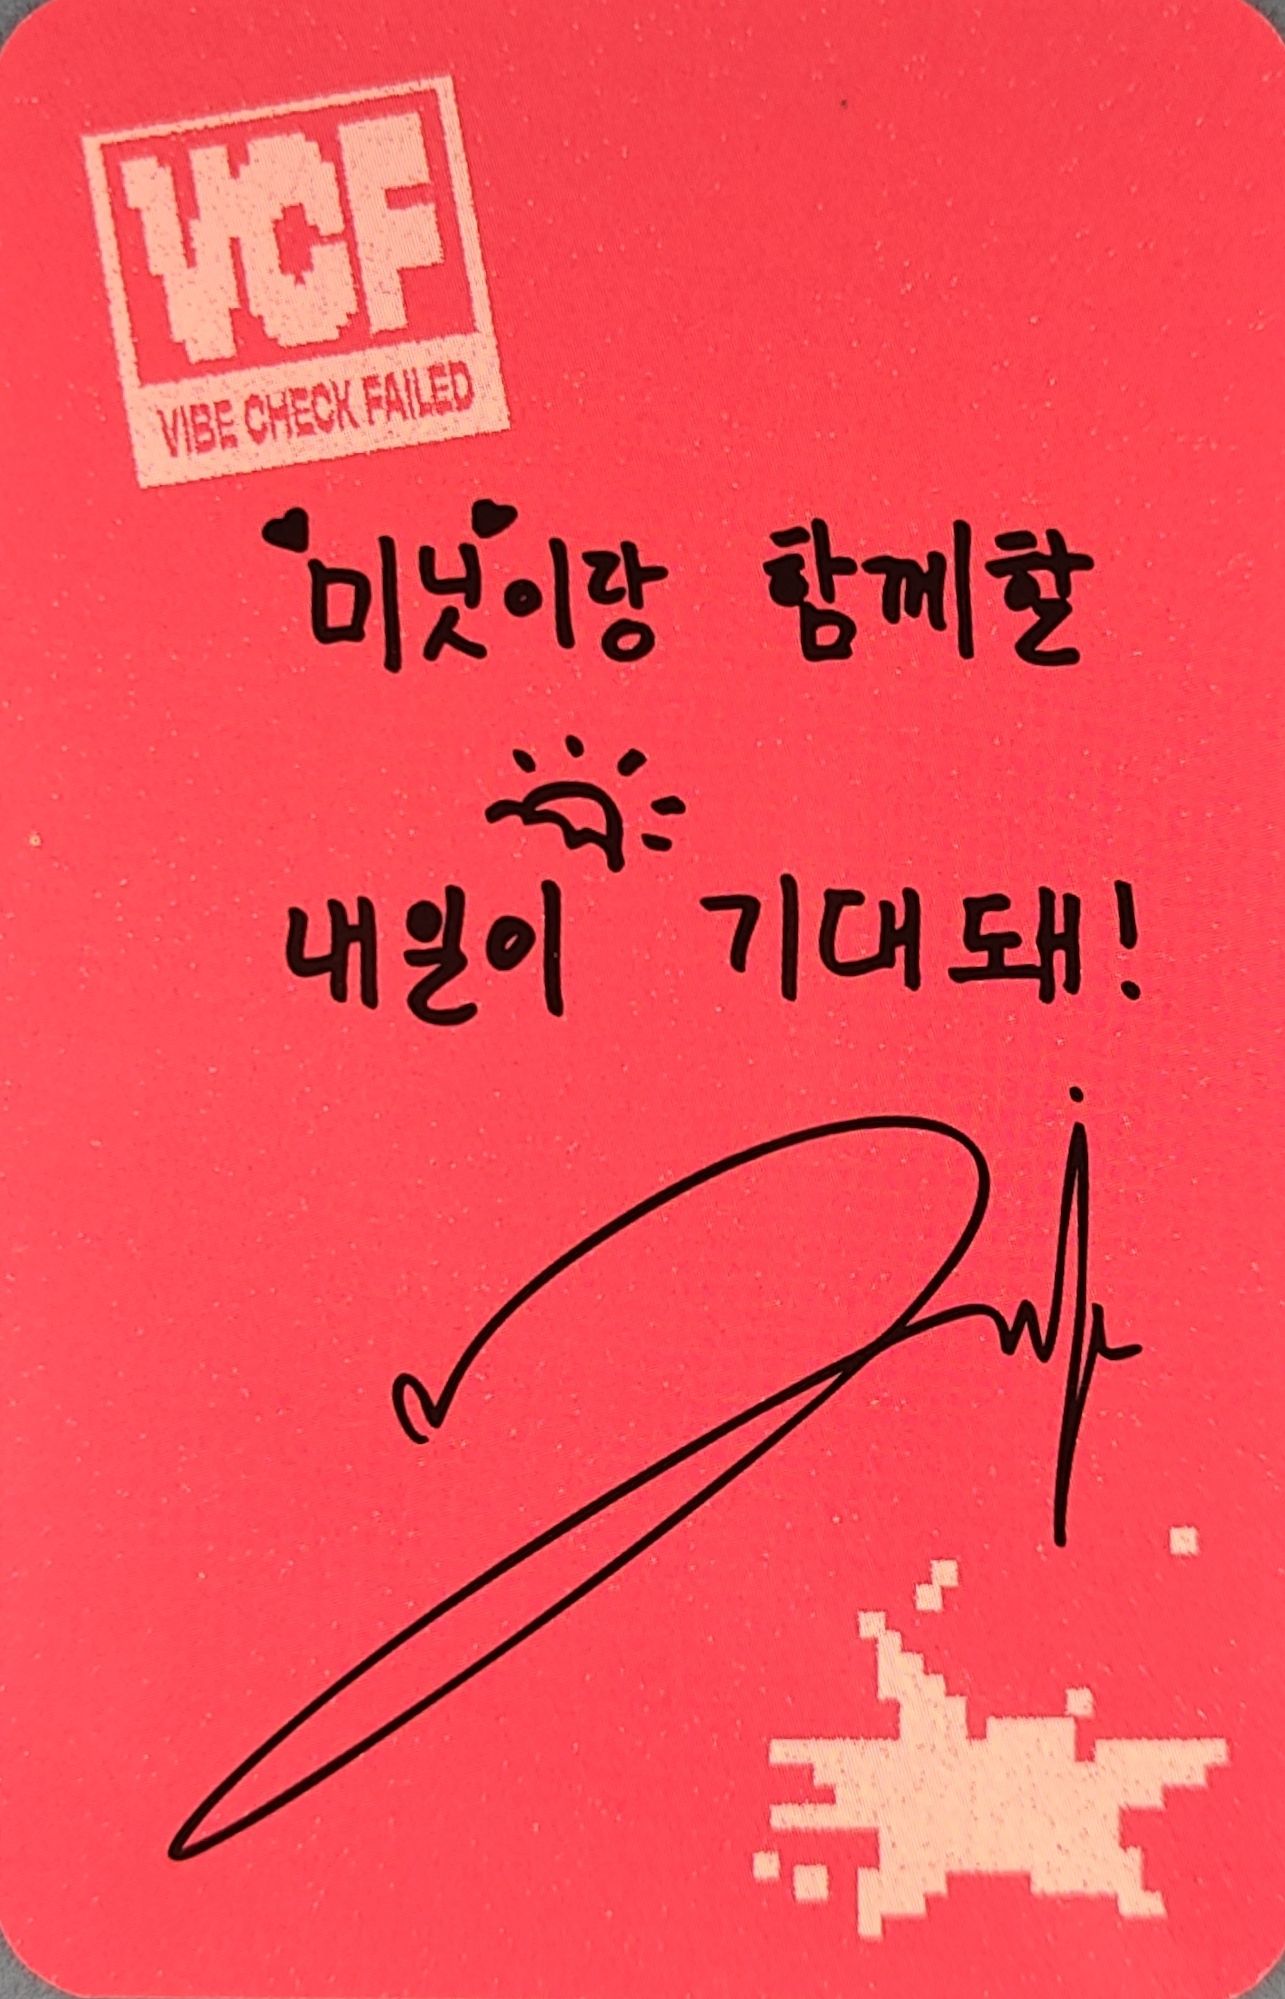 VCF
VIBE CHECK FAILED
미닛이랑 함께할
내일이 기대돼!